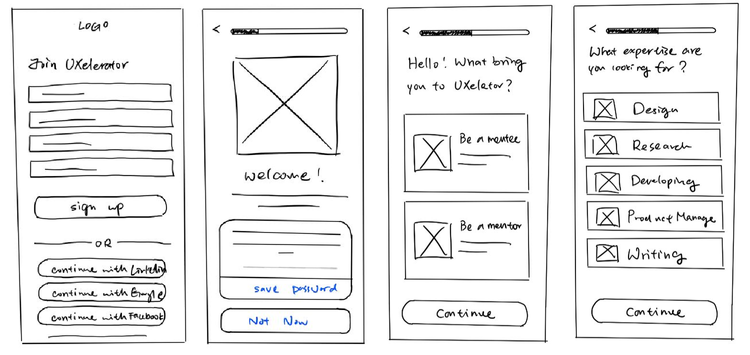 LOGO
Join UXelerator
sign up
OR
continue with Linkedin
continue with Google
continue with Facebook
<
welcome!
save password
Not Now
<
Hello! What bring
you to UXelator?
Be a mentee
Be a mentor
Continue
<
What expertise are
you looking for?
Design
Research
Developing
Product Manage
Writing
Continue